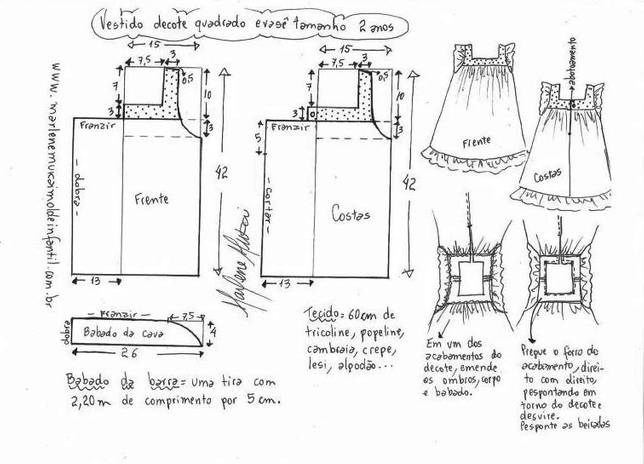 Vestido decote quadrado evasê tamanho 2 anos
www.marlenemukaimoldeinfantil.com.br
15
7,5
3
7
0,5
10
3
3
Franzir
- dobra -
Frente
42
13
15
7,5
3
7
0,5
10
3
3
5
Franzir
- cortar -
Costas
42
13
Marlene Mukai
abotoamento
Frente
Costas
- Franzir -
7,5
dobra
Babado da cava
4
26
Babado da barra = uma tira com
2,20m de comprimento por 5 cm.
Tecido = 60cm de
tricoline, popeline,
cambraia, crepe,
lesi, algodão...
Em um dos
acabamentos do
decote, emende
os ombros, corpo
e babado.
Pregue o forro do
acabamento, direi-
to com direito,
pespontando em
torno do decote e
desvire.
Pesponte as beiradas